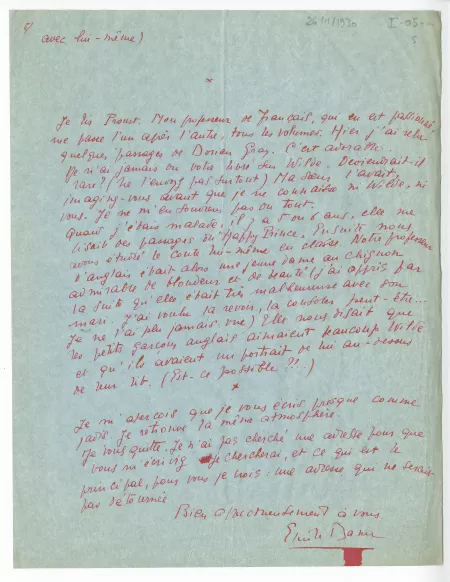 5/
26/11/1930
I-05
5
avec lui-même)
*
Je lis Proust. Mon professeur de Français, qui en est passionné,
me passe l'un après l'autre, tous les volumes. Hier j'ai relu
quelques passages de Dorian Gray. C'est adorable.
Je n'ai jamais eu votre livre sur Wilde. Deviendrait-il
rare? (ne l'envoyez pas surtout) Ma sœur l'avait,
imaginez-vous avant que je ne connaisse ni Wilde, ni
vous. Je ne m'en souviens pas du tout.
Quand j'étais malade, il y a 5 ou 6 ans, elle me
lisait des passages du Happy Prince. Ensuite nous
avons étudié le conte lui-même en classe. Notre professeur
d'anglais était alors une jeune dame au chignon
admirable de blondeur et de beauté (j'ai appris par
la suite qu'elle était très malheureuse avec son
mari. J'ai voulu la revoir, la consoler peut-être...
Je ne l'ai plus jamais vue) Elle nous disait que
les petits garçons anglais aimaient beaucoup Wilde
et qu'ils avaient un portrait de lui au-dessus
de leur lit. (Est-ce possible ?!.)
*
Je m'aperçois que je vous écris presque comme
jadis. Je retrouve la même atmosphère.
Je vous quitte. Je n'ai pas cherché une adresse pour que
vous m'écriviez chercherai, et ce qui est le
principal, pour vous je crois: une adresse qui ne serait
pas détournée
Bien affectueusement à vous